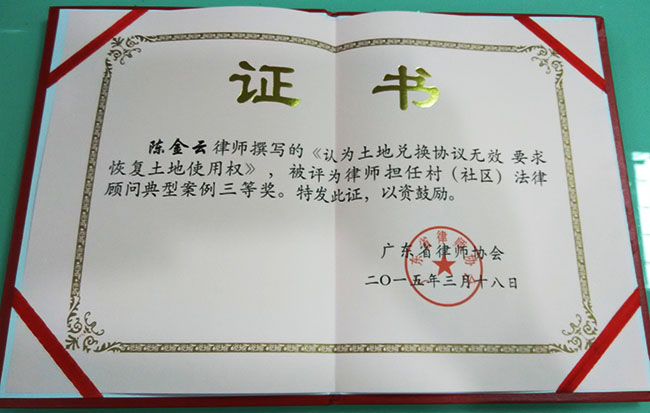 证书
陈金云律师撰写的《认为土地兑换协议无效 要求
恢复土地使用权》，被评为律师担任村（社区）法律
顾问典型案例三等奖。特发此证，以资鼓励。
广东省律师协会
二〇一五年三月十八日